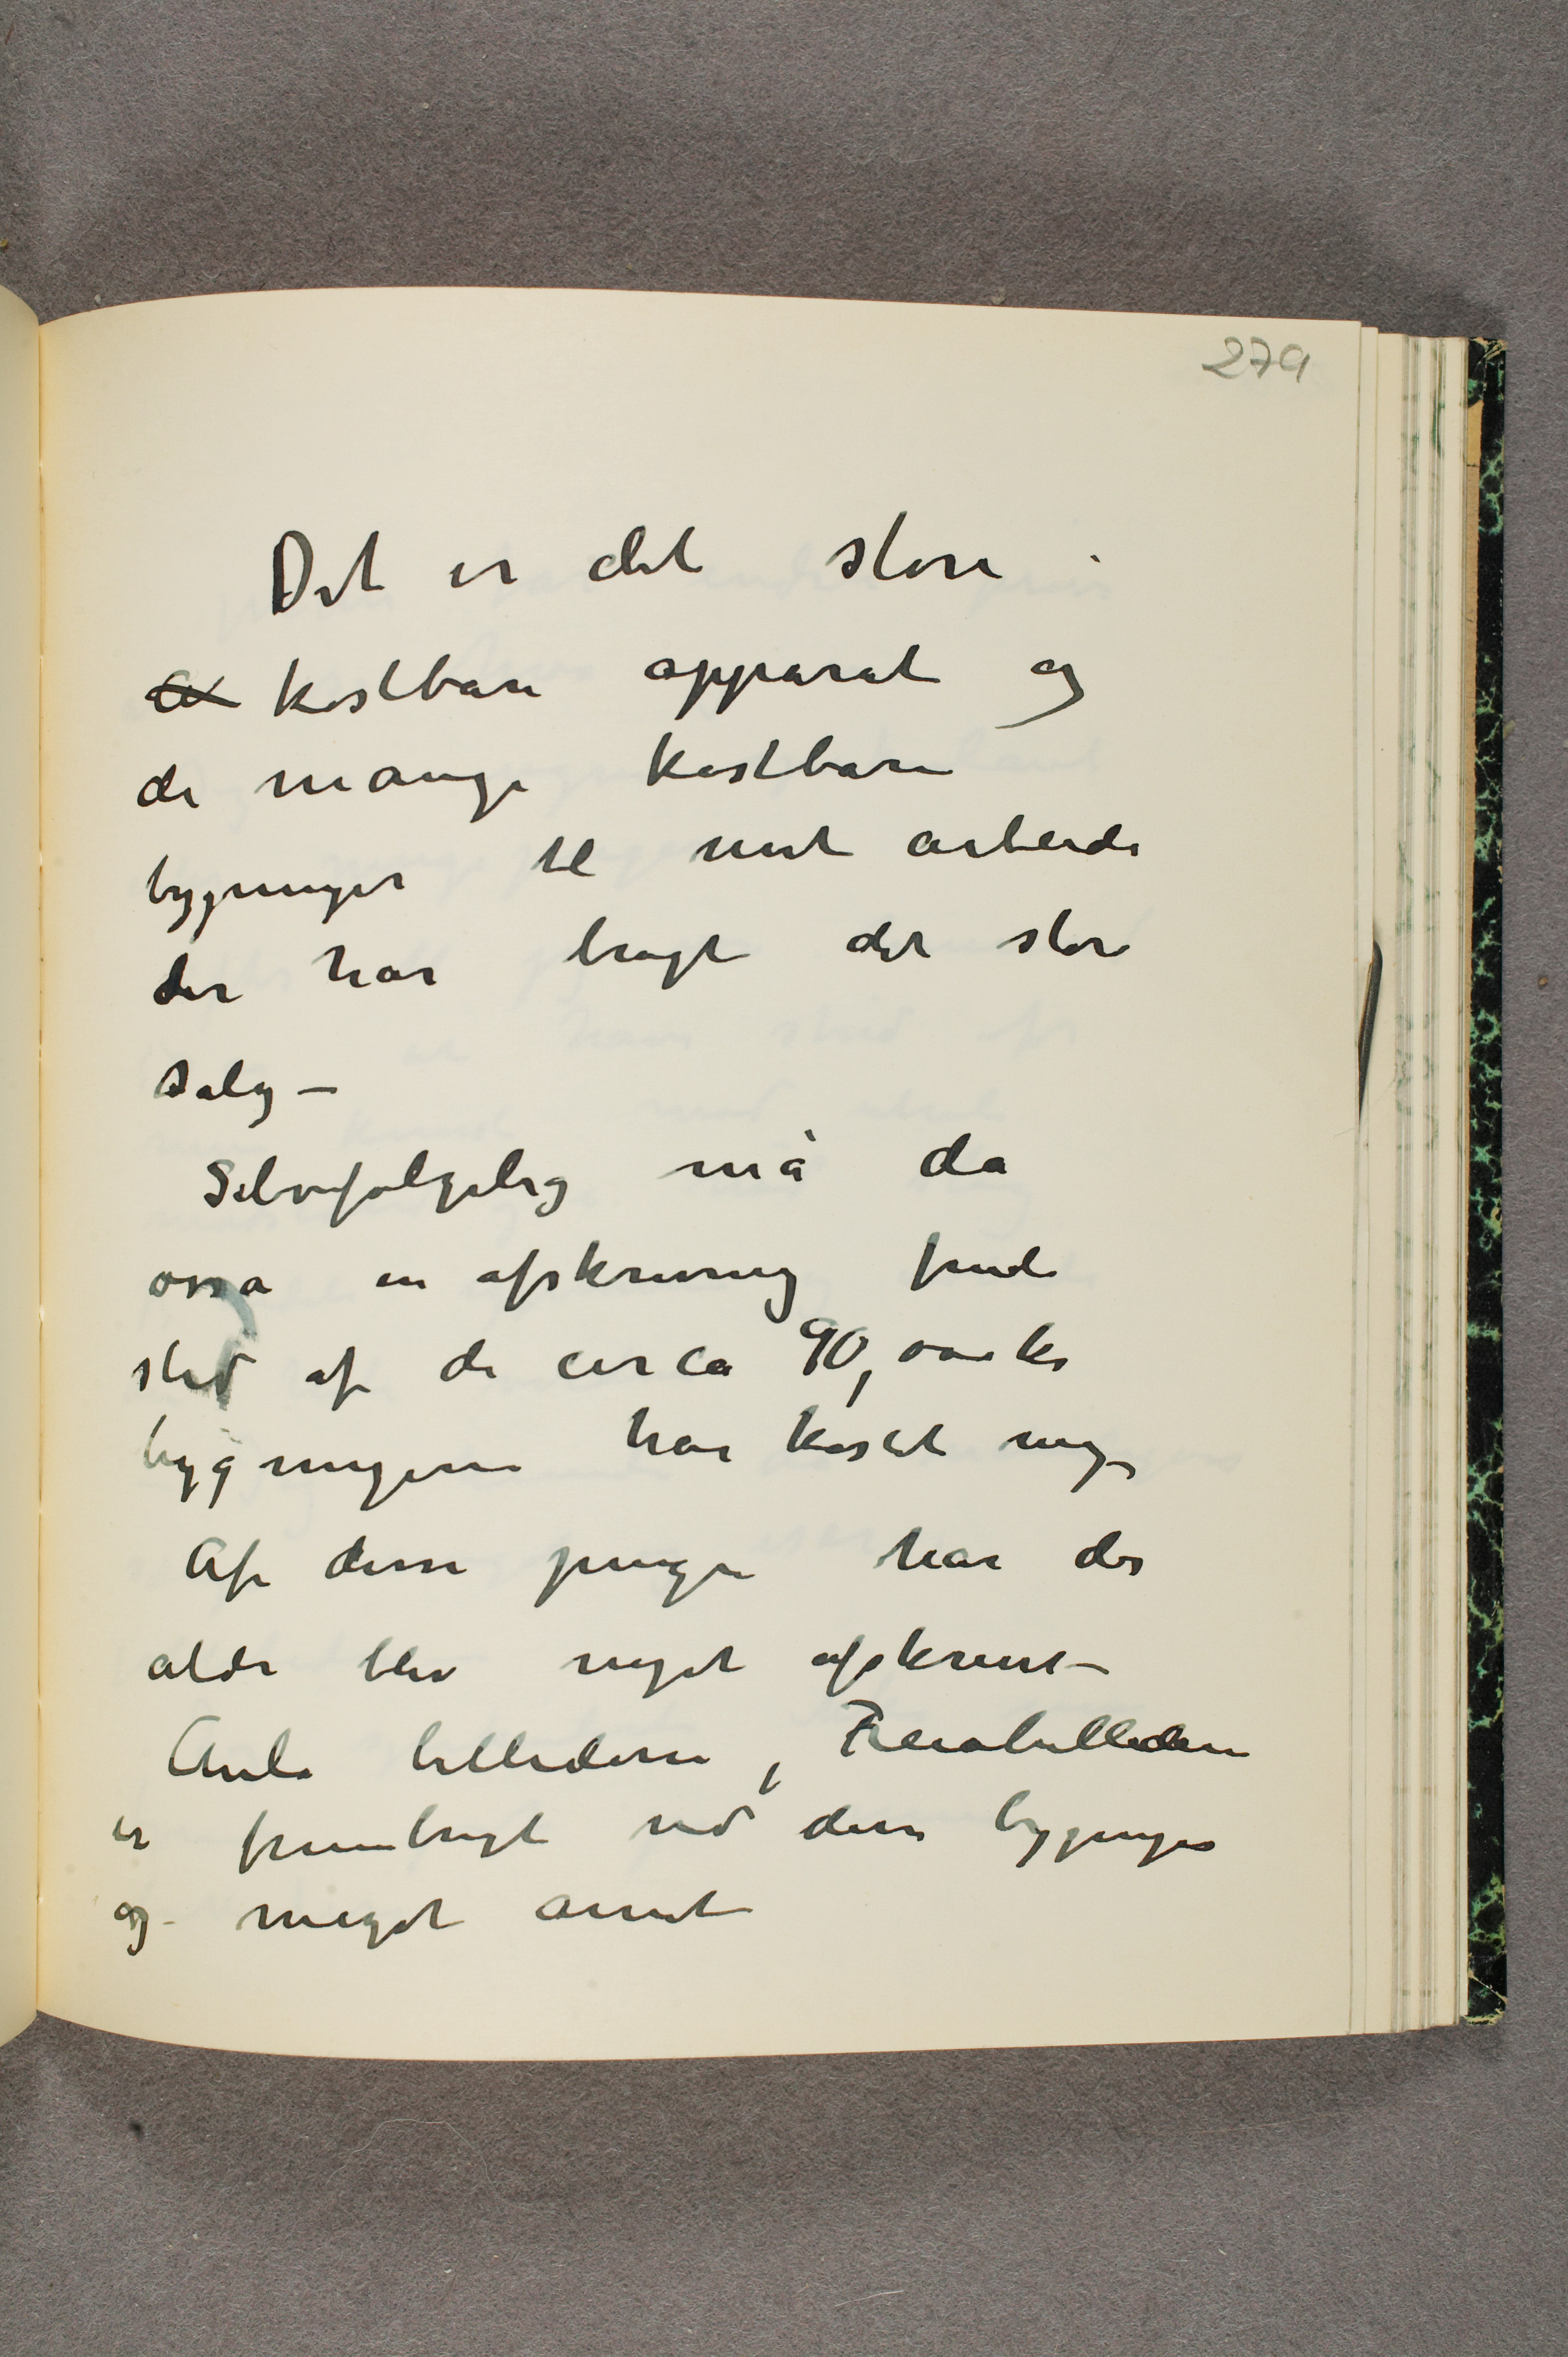 279
Det er det store
a kostbare apparat og
de mange kostbare
bygninger til mit arbeide
der har bragt det store
Salg –
Selvfølgelig må da
osså en afskrivning finde
sted af de circa 90,000 kr
bygningene har kostet mig
Af disse penge har der
aldri blev noget afskrivet –
Aula billederne, Freiabillederne
er frembragt ved disse bygninger
og meget annet